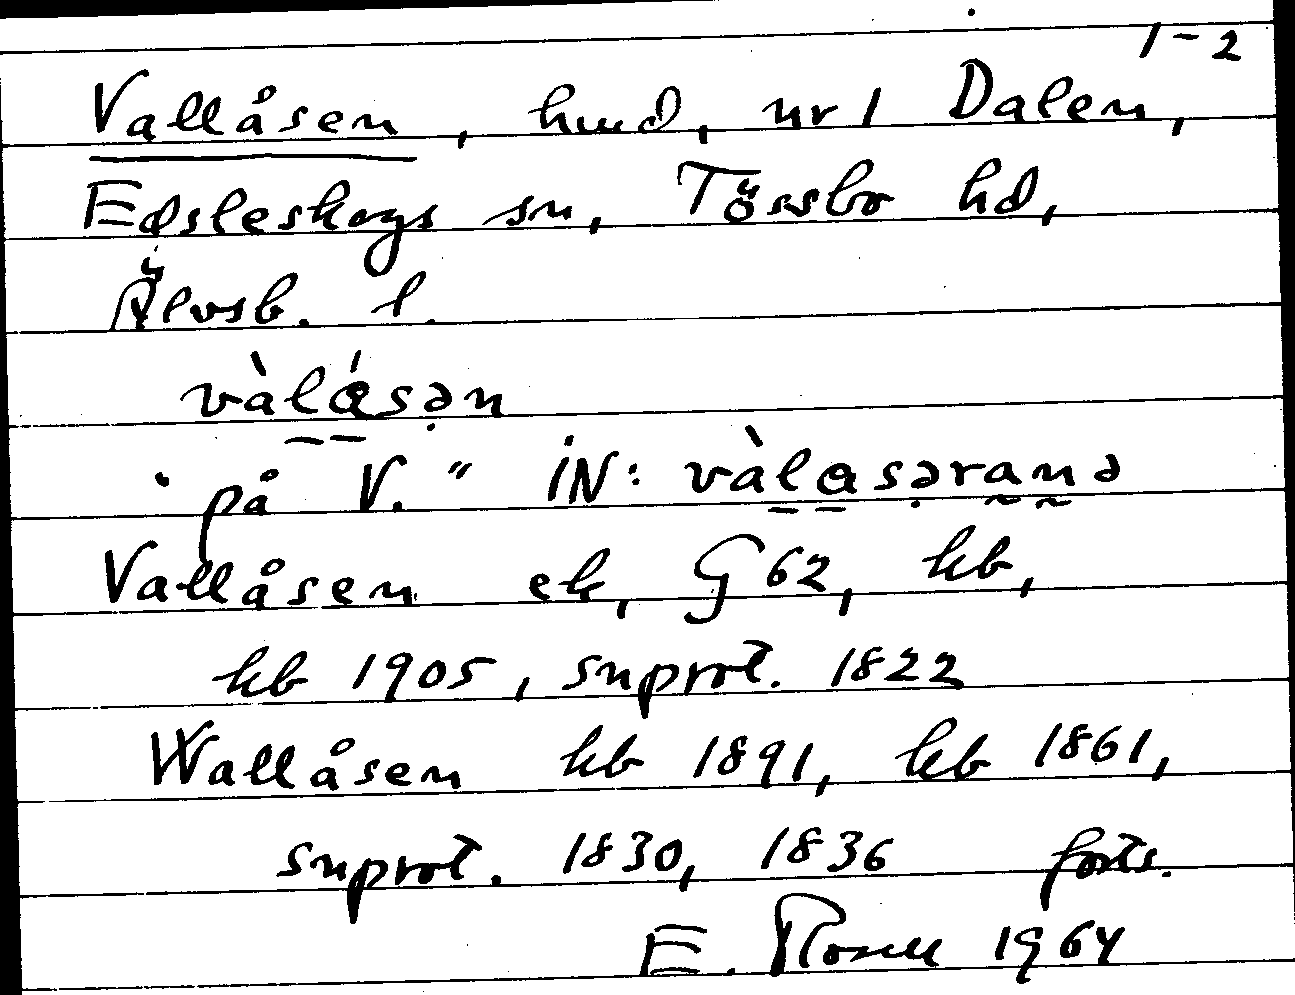 1-2
Vallåsen, hmd, nr 1 Dalen,
Edsleskogs sn, Tössbo hd,
Älvsb. l.
vàlåsən
"på V." iN: vàlasəranə
Vallåsen ek, G 62, kb,
hb 1905, snprot. 1822
Wallåsen hb 1891, hb 1861,
snprot. 1830, 1836 forts.
E. 1964